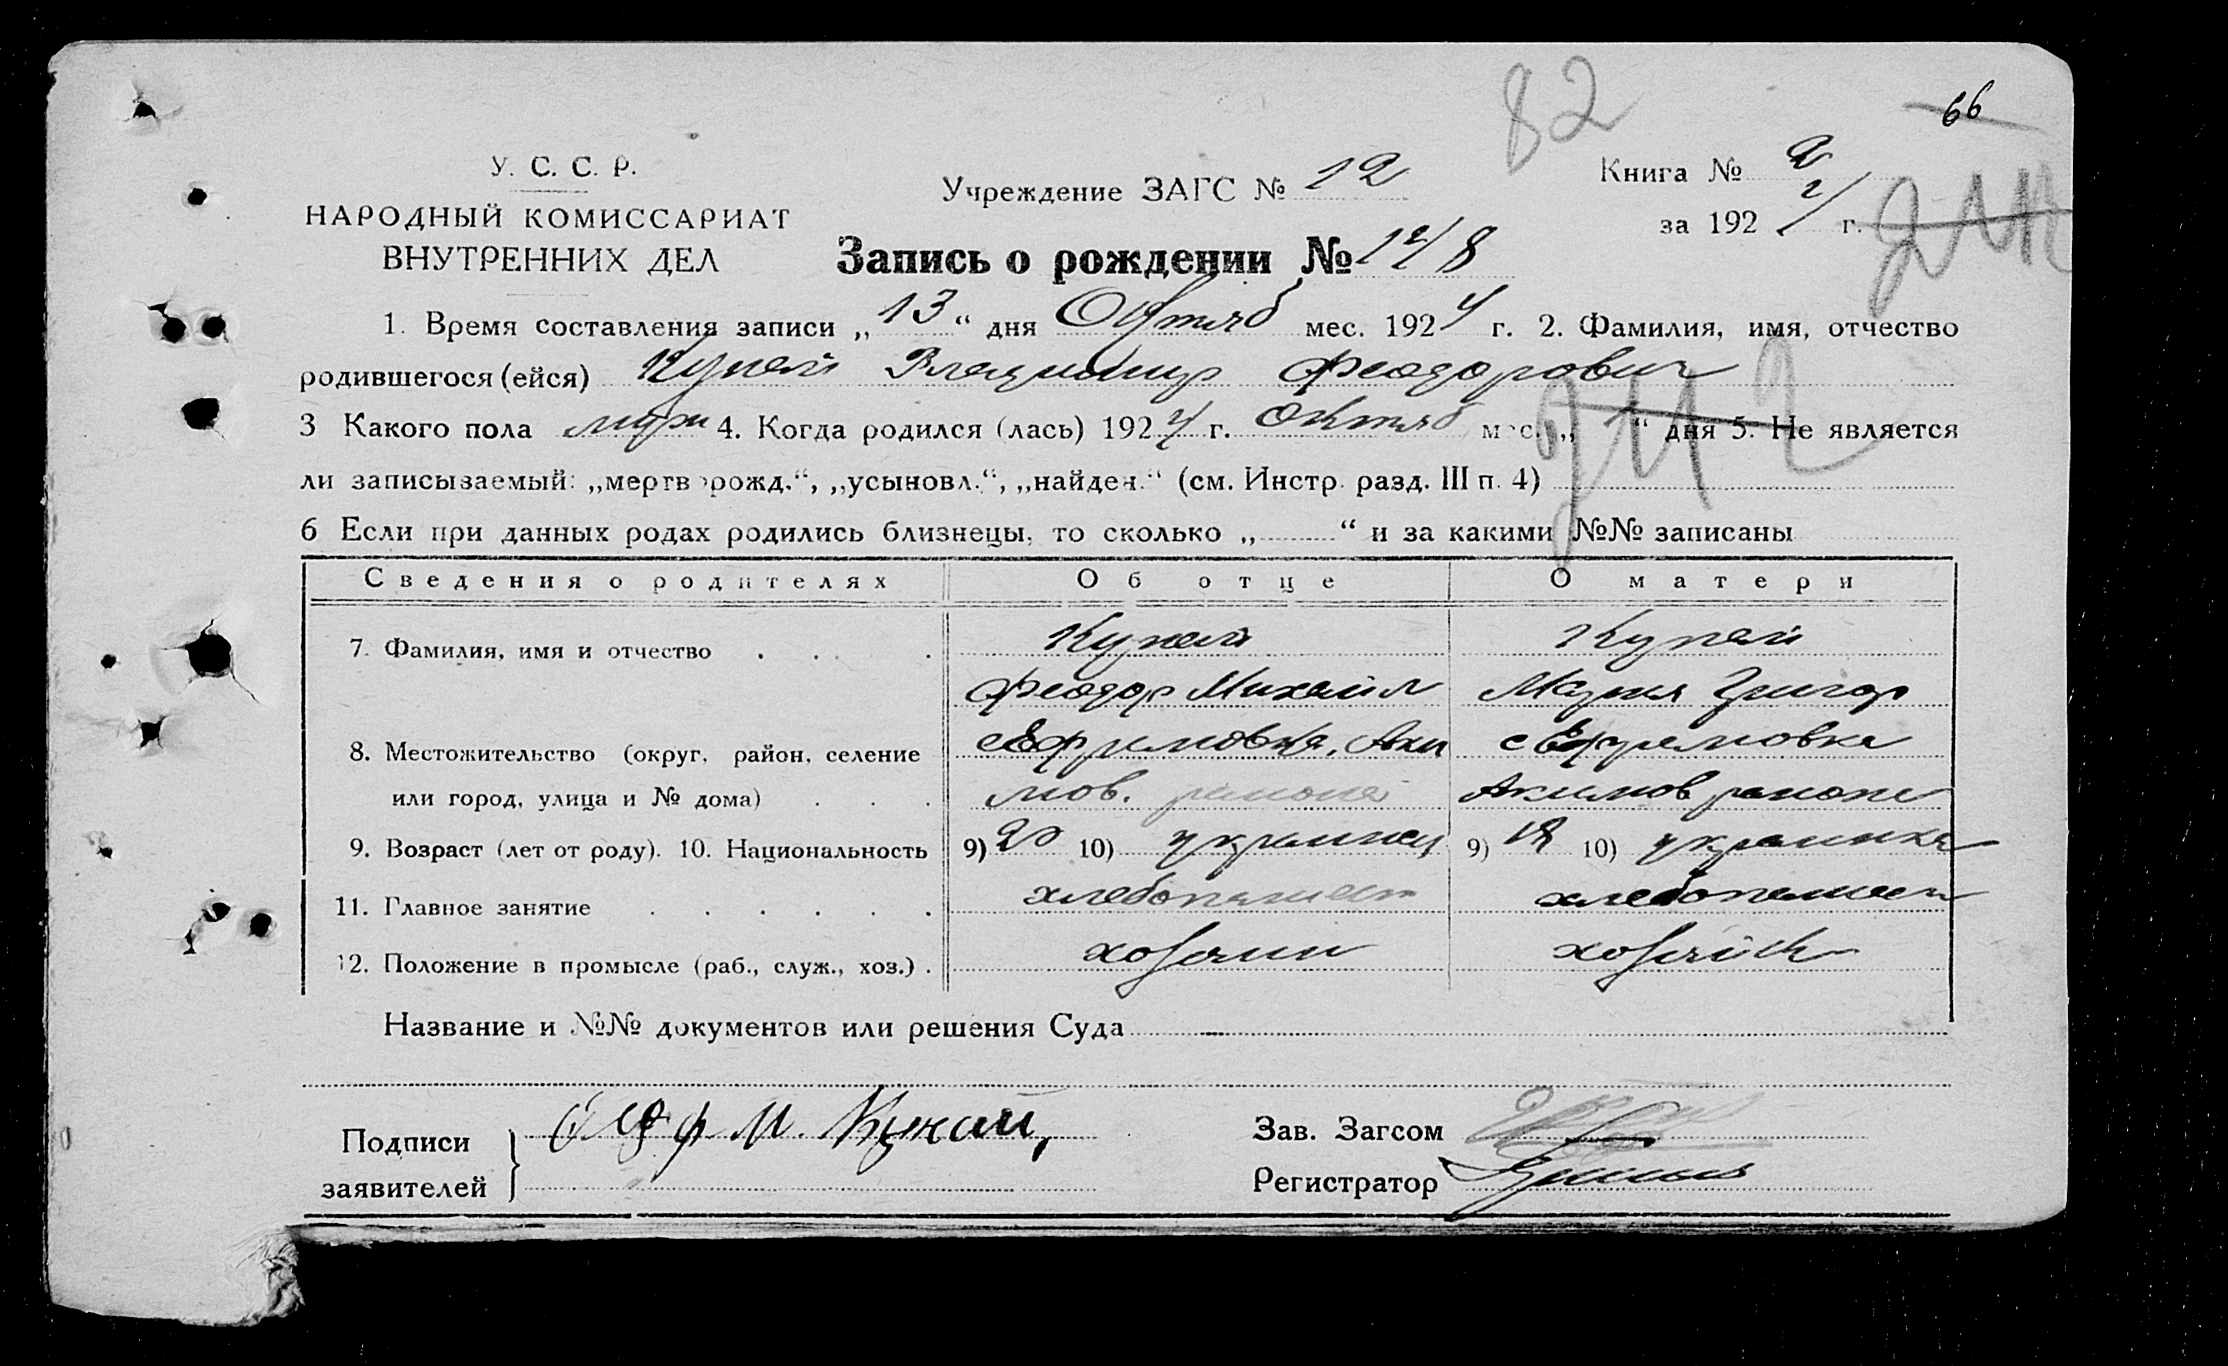 82
66
У. С. С. Р.
НАРОДНЫЙ КОМИССАРИАТ
ВНУТРЕННИХ ДЕЛ
Учреждение ЗАГС № 12
Книга № 2
за 1924 г.
Запись о рождении № 148
1. Время составления записи „13“ дня Октяб мес. 1924 г. 2. Фамилия, имя, отчество
родившегося (ейся) Кукай Владимир Феодорович
3 Какого пола муж 4. Когда родился (лась) 1924 г. Октяб мес. „ “ дня 5. Не является
ли записываемый: „мертворожд.“, „усыновл.“, „найден.“ (см. Инстр. разд. III п. 4)
6 Если при данных родах родились близнецы, то сколько „ “ и за какими №№ записаны
Сведения о родителях Об отце О матери
7. Фамилия, имя и отчество Кукай Кукай
Феодор Михайл Григор
8. Местожительство (округ, район, селение с Ефремовка, Аки с Ефремовка
или город, улица и № дома) мов. района Акимов района
9. Возраст (лет от роду). 10. Национальность 9) 20 10) украинец 9) 18 10) украинка
11. Главное занятие хлебопашест хлебопашест
12. Положение в промысле (раб., служ., хоз.) хозяин хозяйк
Название и №№ документов или решения Суда —
Подписи М. Кукай,
заявителей
Зав. Загсом
Регистратор